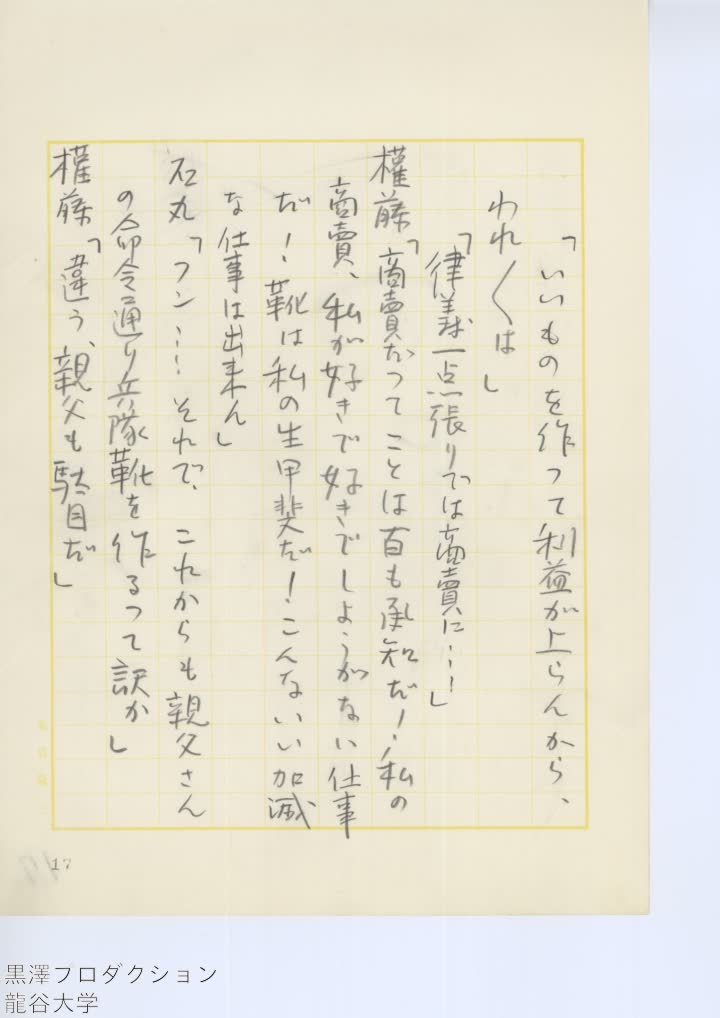 「いいものを作つて利益が上らんから、
われ〱は」
「律義一点張りでは商賣に…」
權藤「商賣だつてことは百も承知だ！私の
商賣、私が好きで好きでしようがない仕事
だ！靴は私の生甲斐だ！こんないい加減
な仕事は出来ん」
石丸「フン…それで、これからも親父さん
の命令通り兵隊靴を作るつて訳か」
權藤「違う、親父も駄目だ」
17
黒澤プロダクション
龍谷大学